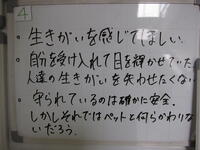 4
・生きがいを感じてほしい.
・自分を受け入れて目を輝かせていた
人達の生きがいを失わせたくない
・守られているのは確かに安全.
しかしそれではペットと何らかわりな
いだろう.